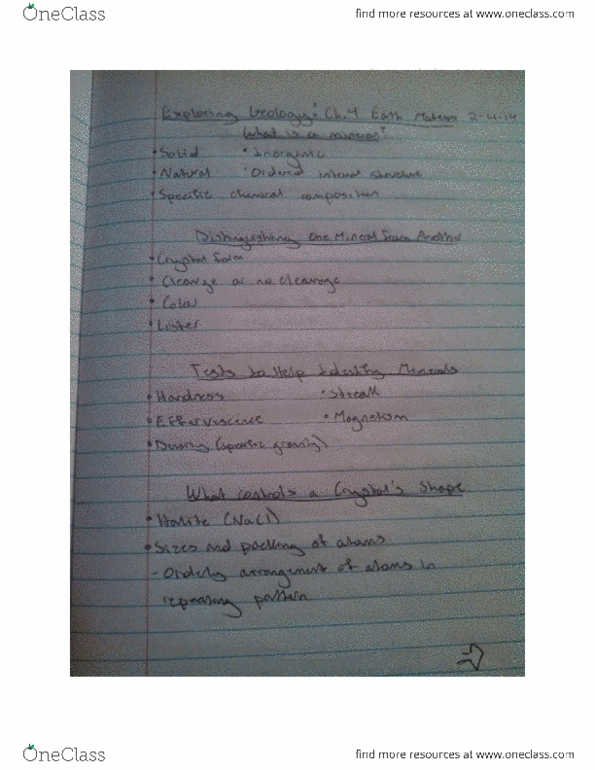 OneClass find more resources at www.oneclass.com
Exploring Geology: Ch.4 Earth Materials 2-4-14
What is a mineral?
• Solid • Inorganic
• Natural • Ordered internal structure
• Specific chemical composition
Distinguishing One Mineral from Another
• Crystal form
• Cleavage or no cleavage
• Color
• Luster
Tests to Help Identify Minerals
• Hardness • Streak
• Effervescence • Magnetism
• Density (specific gravity)
What controls a Crystal's Shape
• Halite (NaCl)
• Sizes and packing of atoms
- Orderly arrangement of atoms in
repeating pattern
OneClass find more resources at www.oneclass.com